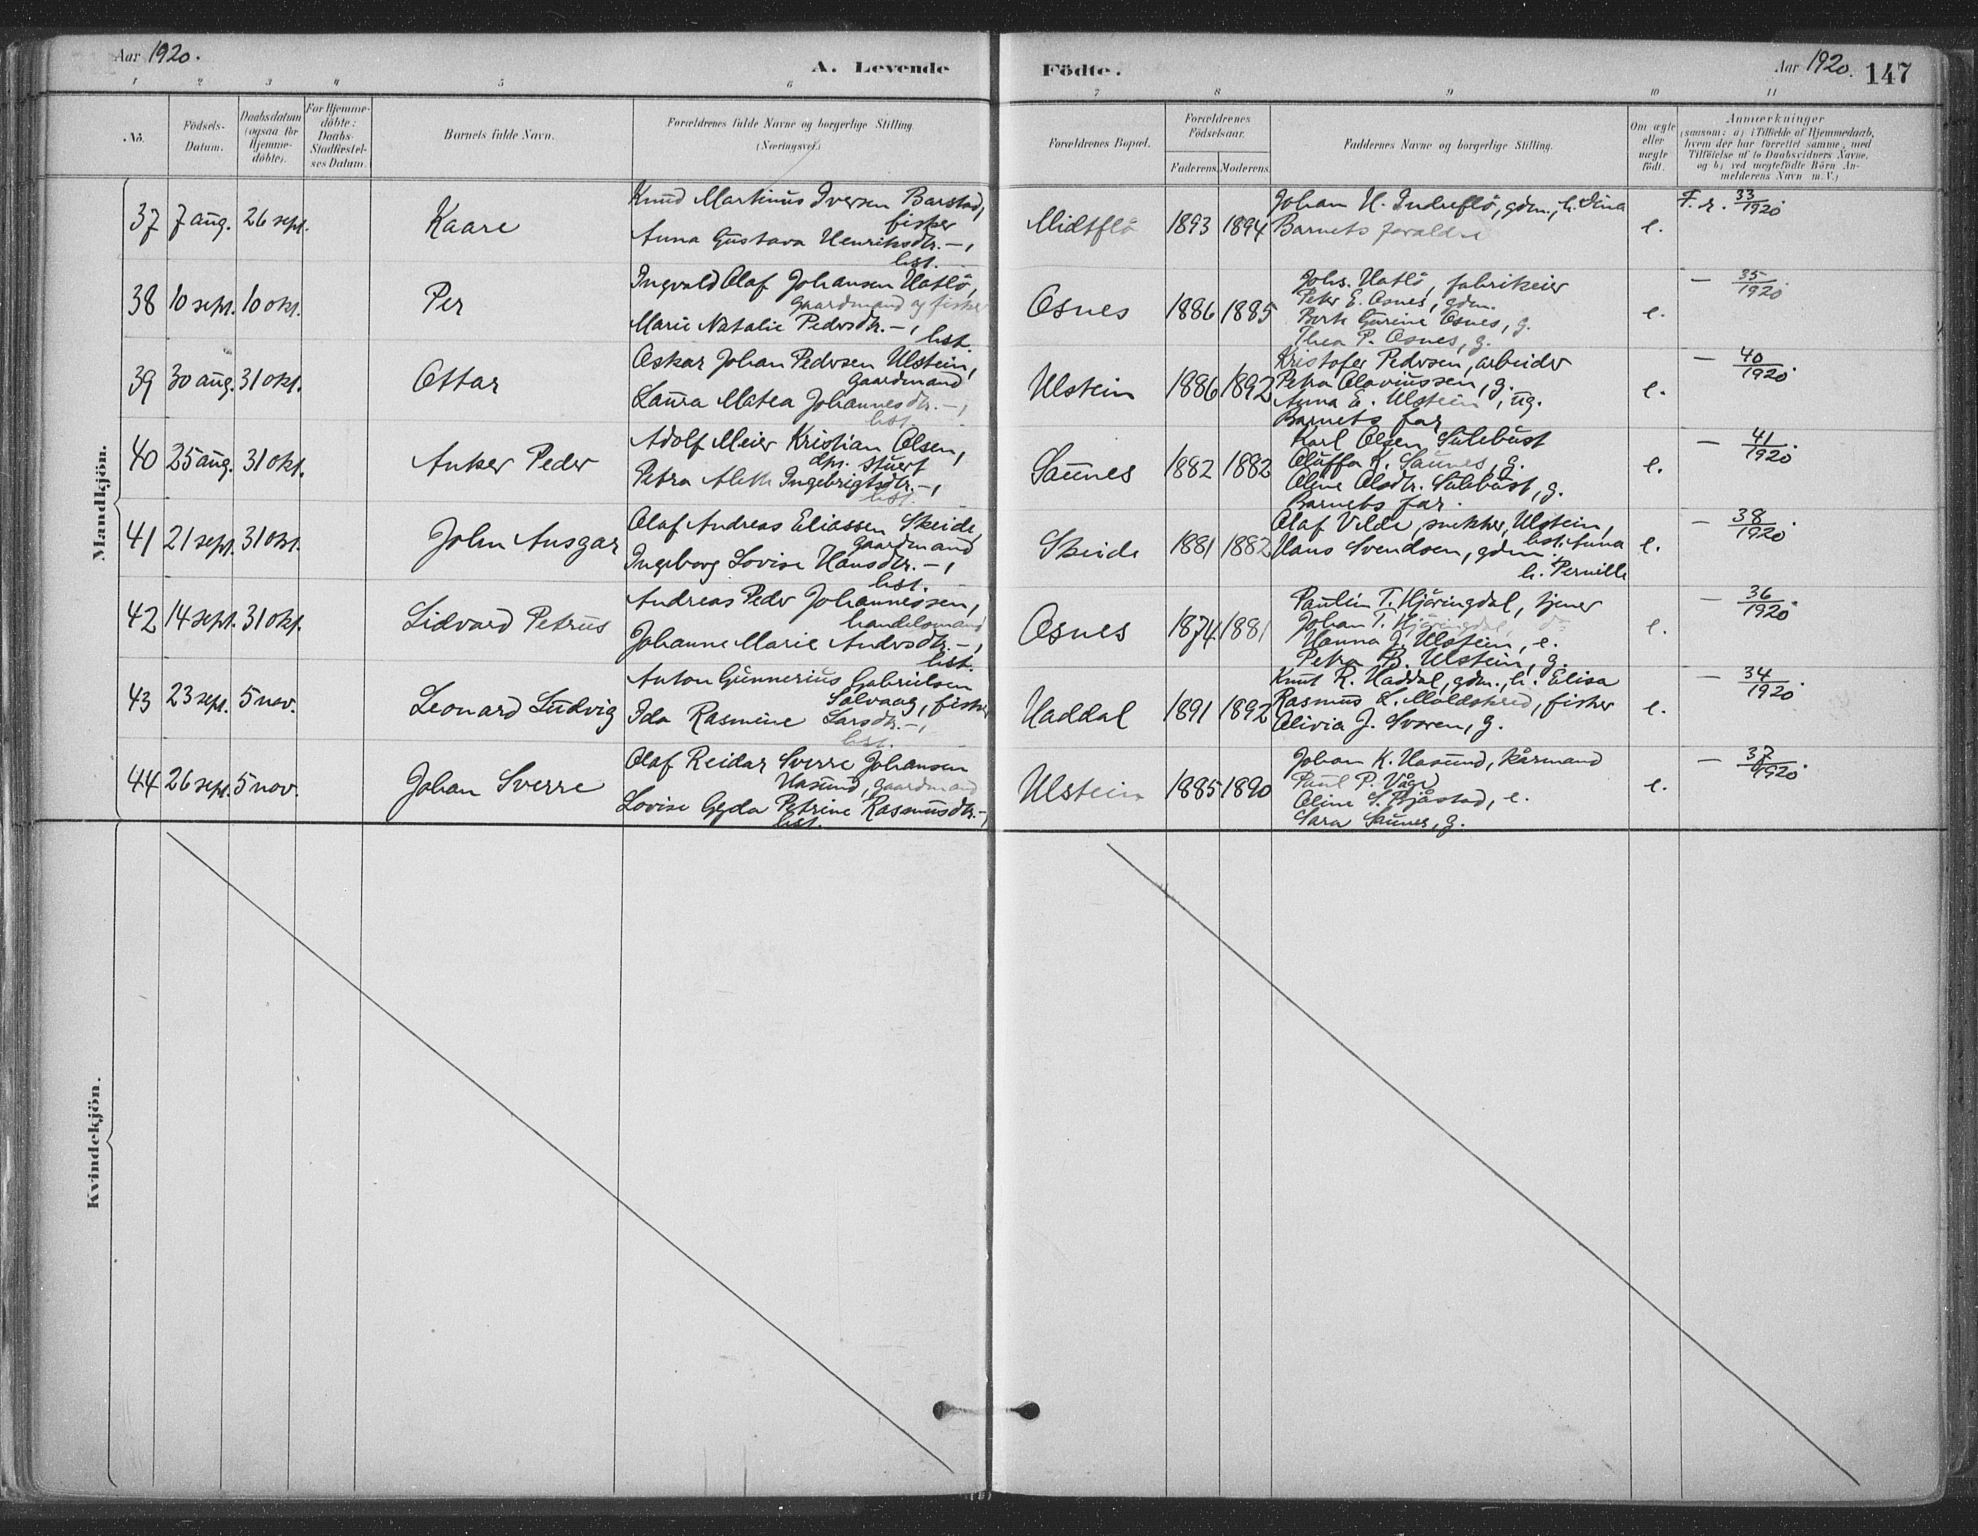 Aar 1920.
A. Levende
Födte.
Aar 1920. 147
1 2 3 4 5 6 7 8 9 10 11
No.
Födsels-Datum.
Daabsdatum (ogsaa for Hjemme-döbte).
For Hjemme-döbte: Daabs-Stadfæstel-ses Datum.
Barnets fulde Navn.
Forældrenes fulde Navne og borgerlige Stilling.
(Næringsvei.)
Forældrenes Bopæl.
Forældrenes Födselsaar.
Faderens. Moderens.
Faddernes Navne og borgerlige Stilling.
Om ægte eller uægte födt.
Anmærkninger
(saasom: a) i Tilfælde af Hjemmedaab,
hvem der har forrettet samme, med
Tilföielse af to Daabsvidners Navne,
og b) ved uægtefödte Börn An-
melderens Navn m. V.)
Mandkjön.
37 7 aug. 26 sept. Kaare
Knud Martinus Iversen Barstad,
fisker
Anna Gustava Henriksdtr. —,
hst.
Midtflö 1893 1894
Johan H. Indreflö, gdm., h. Dina
Barnets foraldre
e.
F. r. 33/1920.
38 10 sept. 10 okt. Per
Ingvald Olaf Johansen Hatlö,
gaardmand og fisker
Marie Natalie Pedersdtr. —,
hst.
Osnes 1886 1885
Johs. Hatlö, fabrikeier
Peter E. Osnes, gdm.
Berte Gurine Osnes, g.
Thea P. Osnes, g.
e.
— 35/1920.
39 30 aug. 31 okt. Ottar
Oskar Johan Pedersen Ulstein,
gaardmand
Laura Matea Johannesdtr. —,
hst.
Ulstein 1886 1892
Kristofer Pedersen, arbeider
Petra Olaviussen, g.
Anna E. Ulstein, ug.
Barnets far
e.
— 40/1920.
40 25 aug. 31 okt. Anker Peder
Adolf Meier Kristian Olsen,
dps. stuert
Petra Aleth Ingebrigtsdtr. —,
hst.
Saunes 1882 1882
Karl Olsen Sulebust
Oluffa K. Saunes, g.
Oline Olsdtr. Sulebust, g.
Barnets far.
e.
— 41/1920.
41 21 sept. 31 okt. John Ansgar
Olaf Andreas Eliassen Skeide,
gaardmand
Ingeborg Lovise Hansdtr. —,
hst.
Skeide 1881 1882
Olaf Vilde, snekker, Ulstein,
hst. Anna
Hans Svendsen, gdm.,
h. Pernille
e.
— 38/1920.
42 14 sept. 31 okt. Lidvard Petrus
Andreas Peder Johannessen,
handelsmand
Johanne Marie Andersdtr. —,
hst.
Osnes 1874 1881
Paulin T. Hjöringdal, tjener
Johan T. Hjöringdal, do
Hanna J. Ulstein, e.
Petra B. Ulstein, g.
e.
— 36/1920.
43 23 sept. 5 nov. Leonard Ludvig
Anton Gunnerius Gabrielsen
Solvaag, fisker
Ida Rasmine Larsdtr. —,
hst.
Haddal 1891 1892
Knut R. Haddal, gdm., h. Elisa
Rasmus L. Moldskred, fisker
Olivia J. Svoren, g.
e.
— 34/1920.
44 26 sept. 5 nov. Johan Sverre
Olaf Reidar Sverre Johansen
Hasund, gaardmand
Lovise Gyda Petrine Rasmusdtr. —,
hst.
Ulstein 1885 1890
Johan K. Hasund, kårmand
Paul P. Våge
Oline S. Bjåstad, e.
Sara Saunes, g.
e.
— 37/1920.
Kvindekjön.